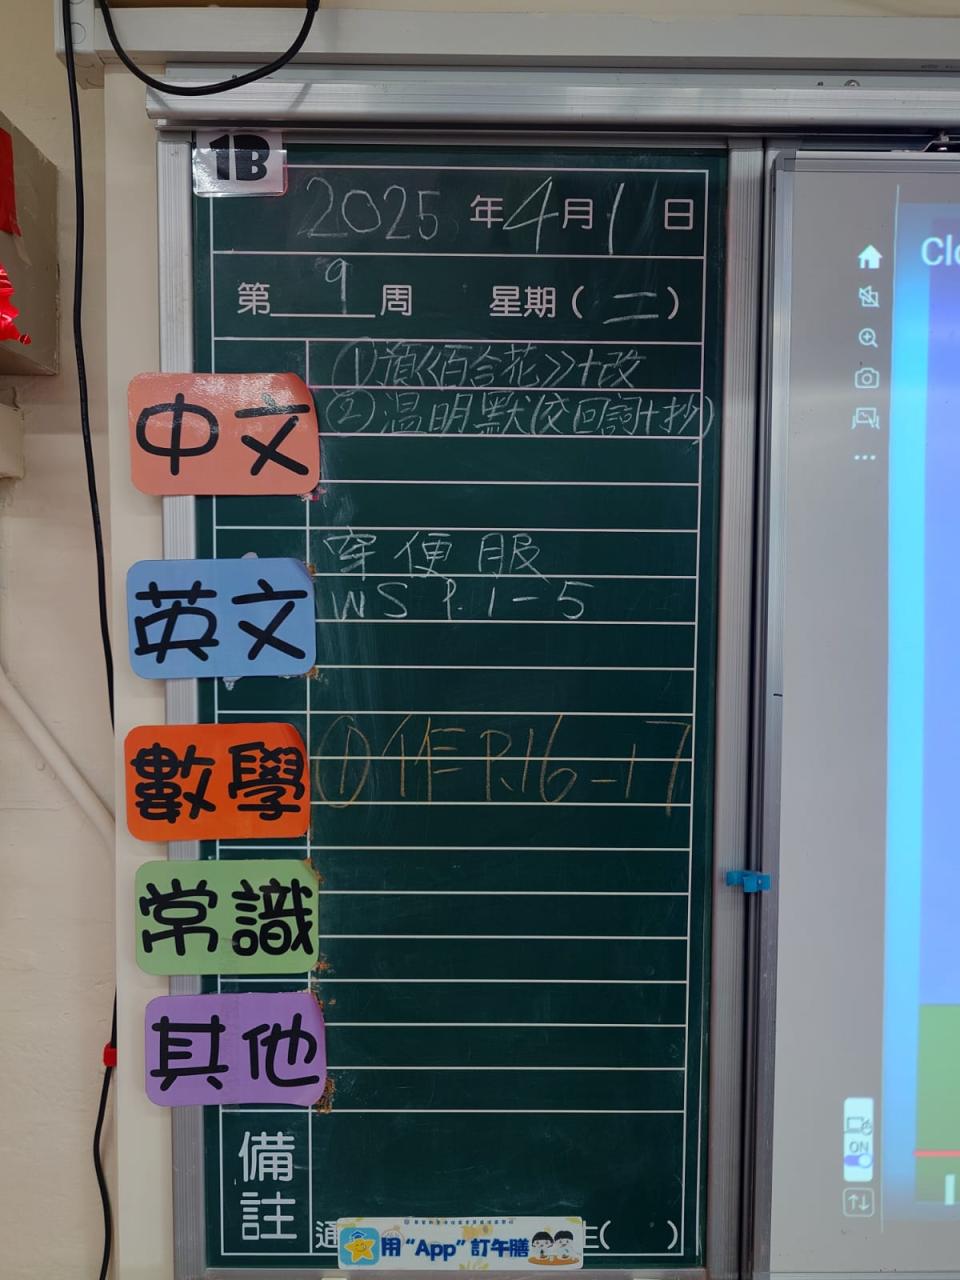 1B
2025年4月1日
第9周 星期(二)
中文
①預《百合花》+改
②溫明默(交回詞+抄)
英文
穿便服
WS P.1-5
數學
①作P.16-17
常識
其他
備註
通
用“App”訂午膳
生( )
Clo
ON